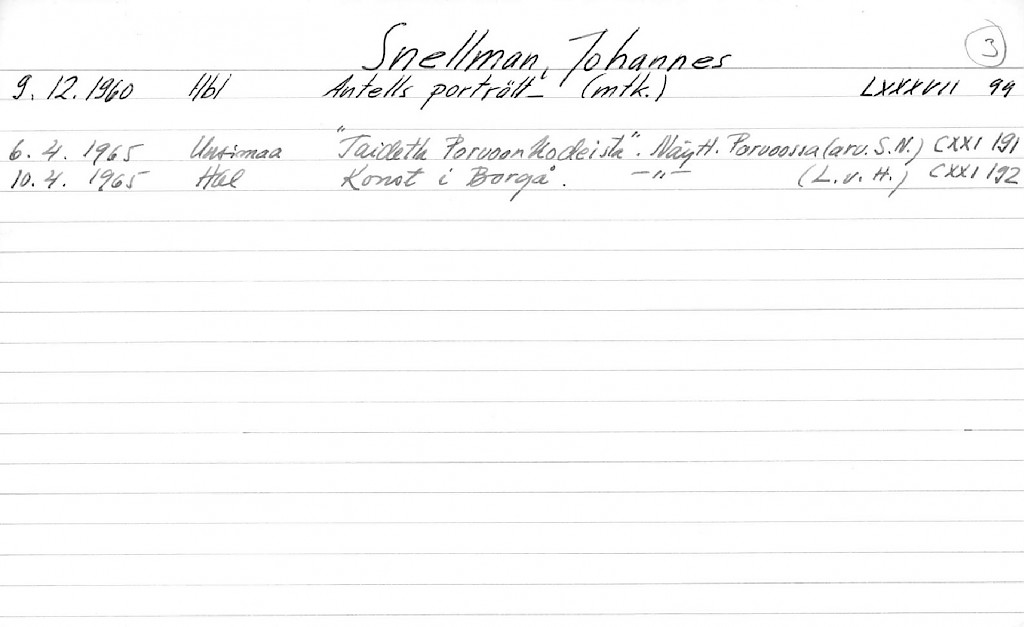 Snellman, Johannes
3
9.12.1960 Hbl Antells porträtt_ (mtk.) LXXXVII 99
6.4.1965 Uusimaa "Taidetta Porvoon kodeista". Näytt. Porvoossa (arv. S.N.) CXXI 191
10.4.1965 Hbl Konst i Borgå. —"— (L.v.H.) CXXI 192